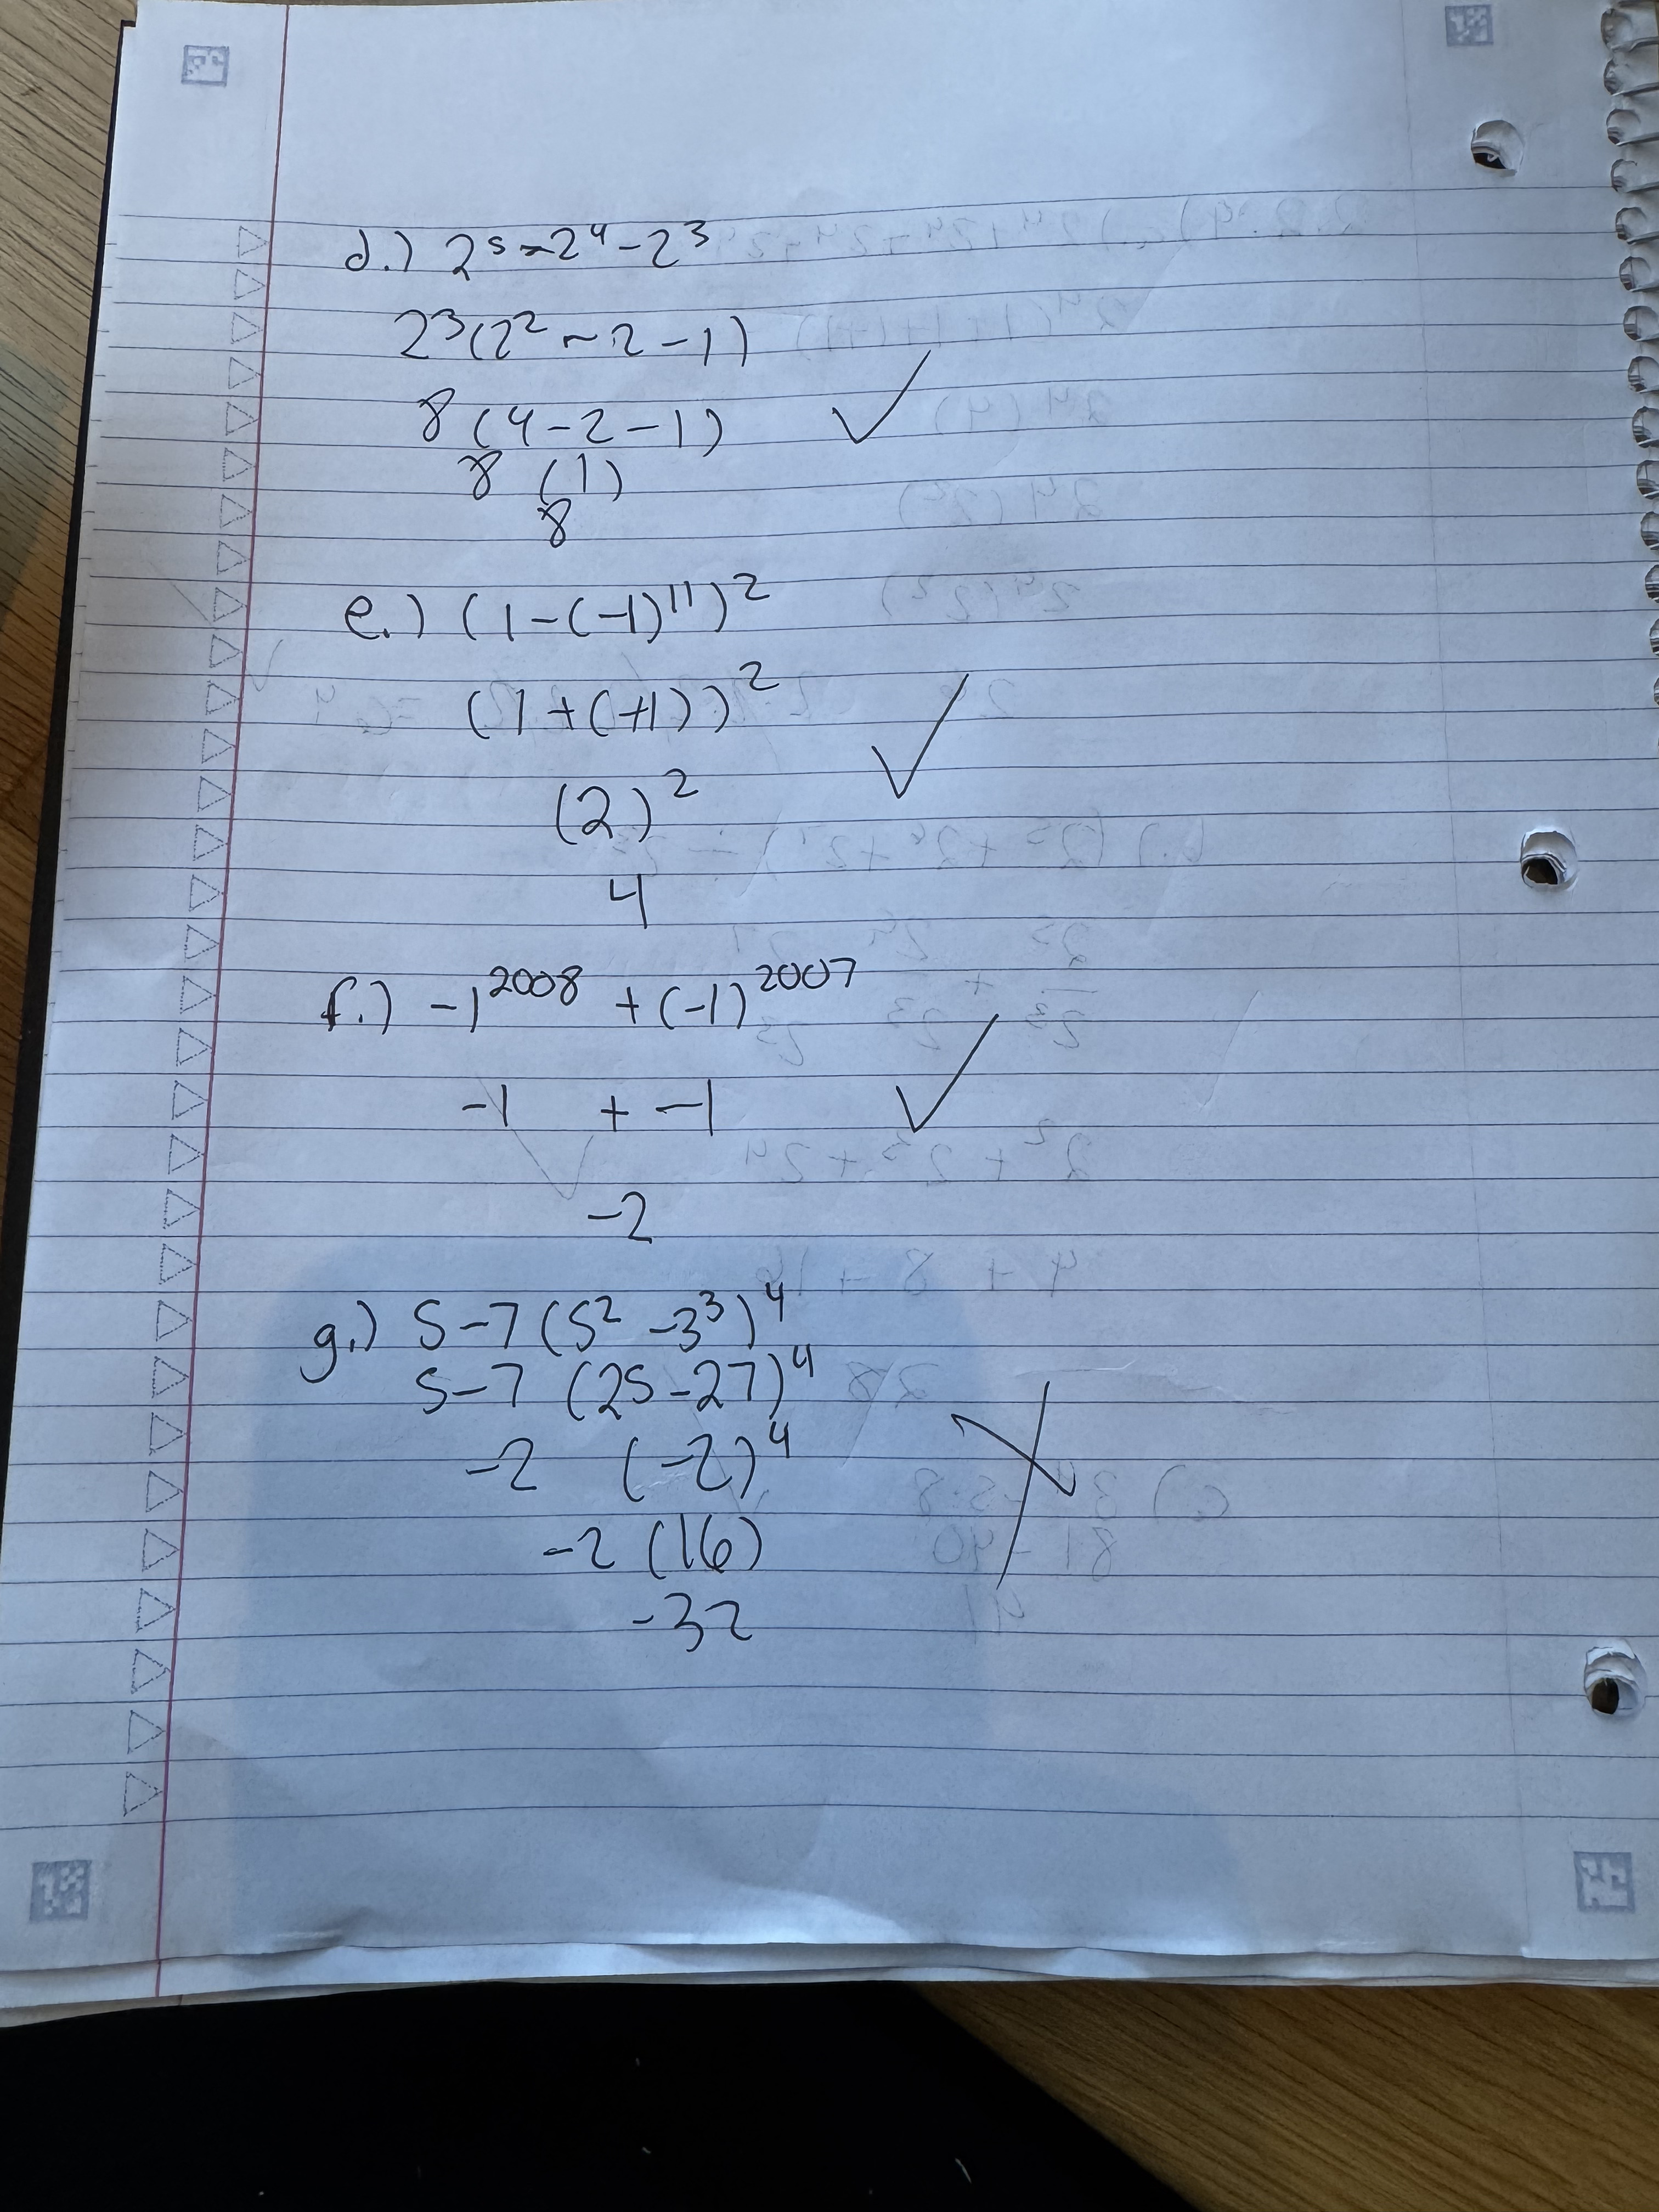 d.) 2⁵-2⁴-2³
2³(2²-2-1)
8(4-2-1) ✓
8 (1)
8
e.) (1-(-1)¹¹)²
(1+(+1))² ✓
(2)²
4
f.) -1²⁰⁰⁸ + (-1)²⁰⁰⁷
-1 + -1 ✓
-2
g.) 5-7(5²-3³)⁴
5-7 (25-27)⁴
-2 (-2)⁴ X
-2 (16)
-32